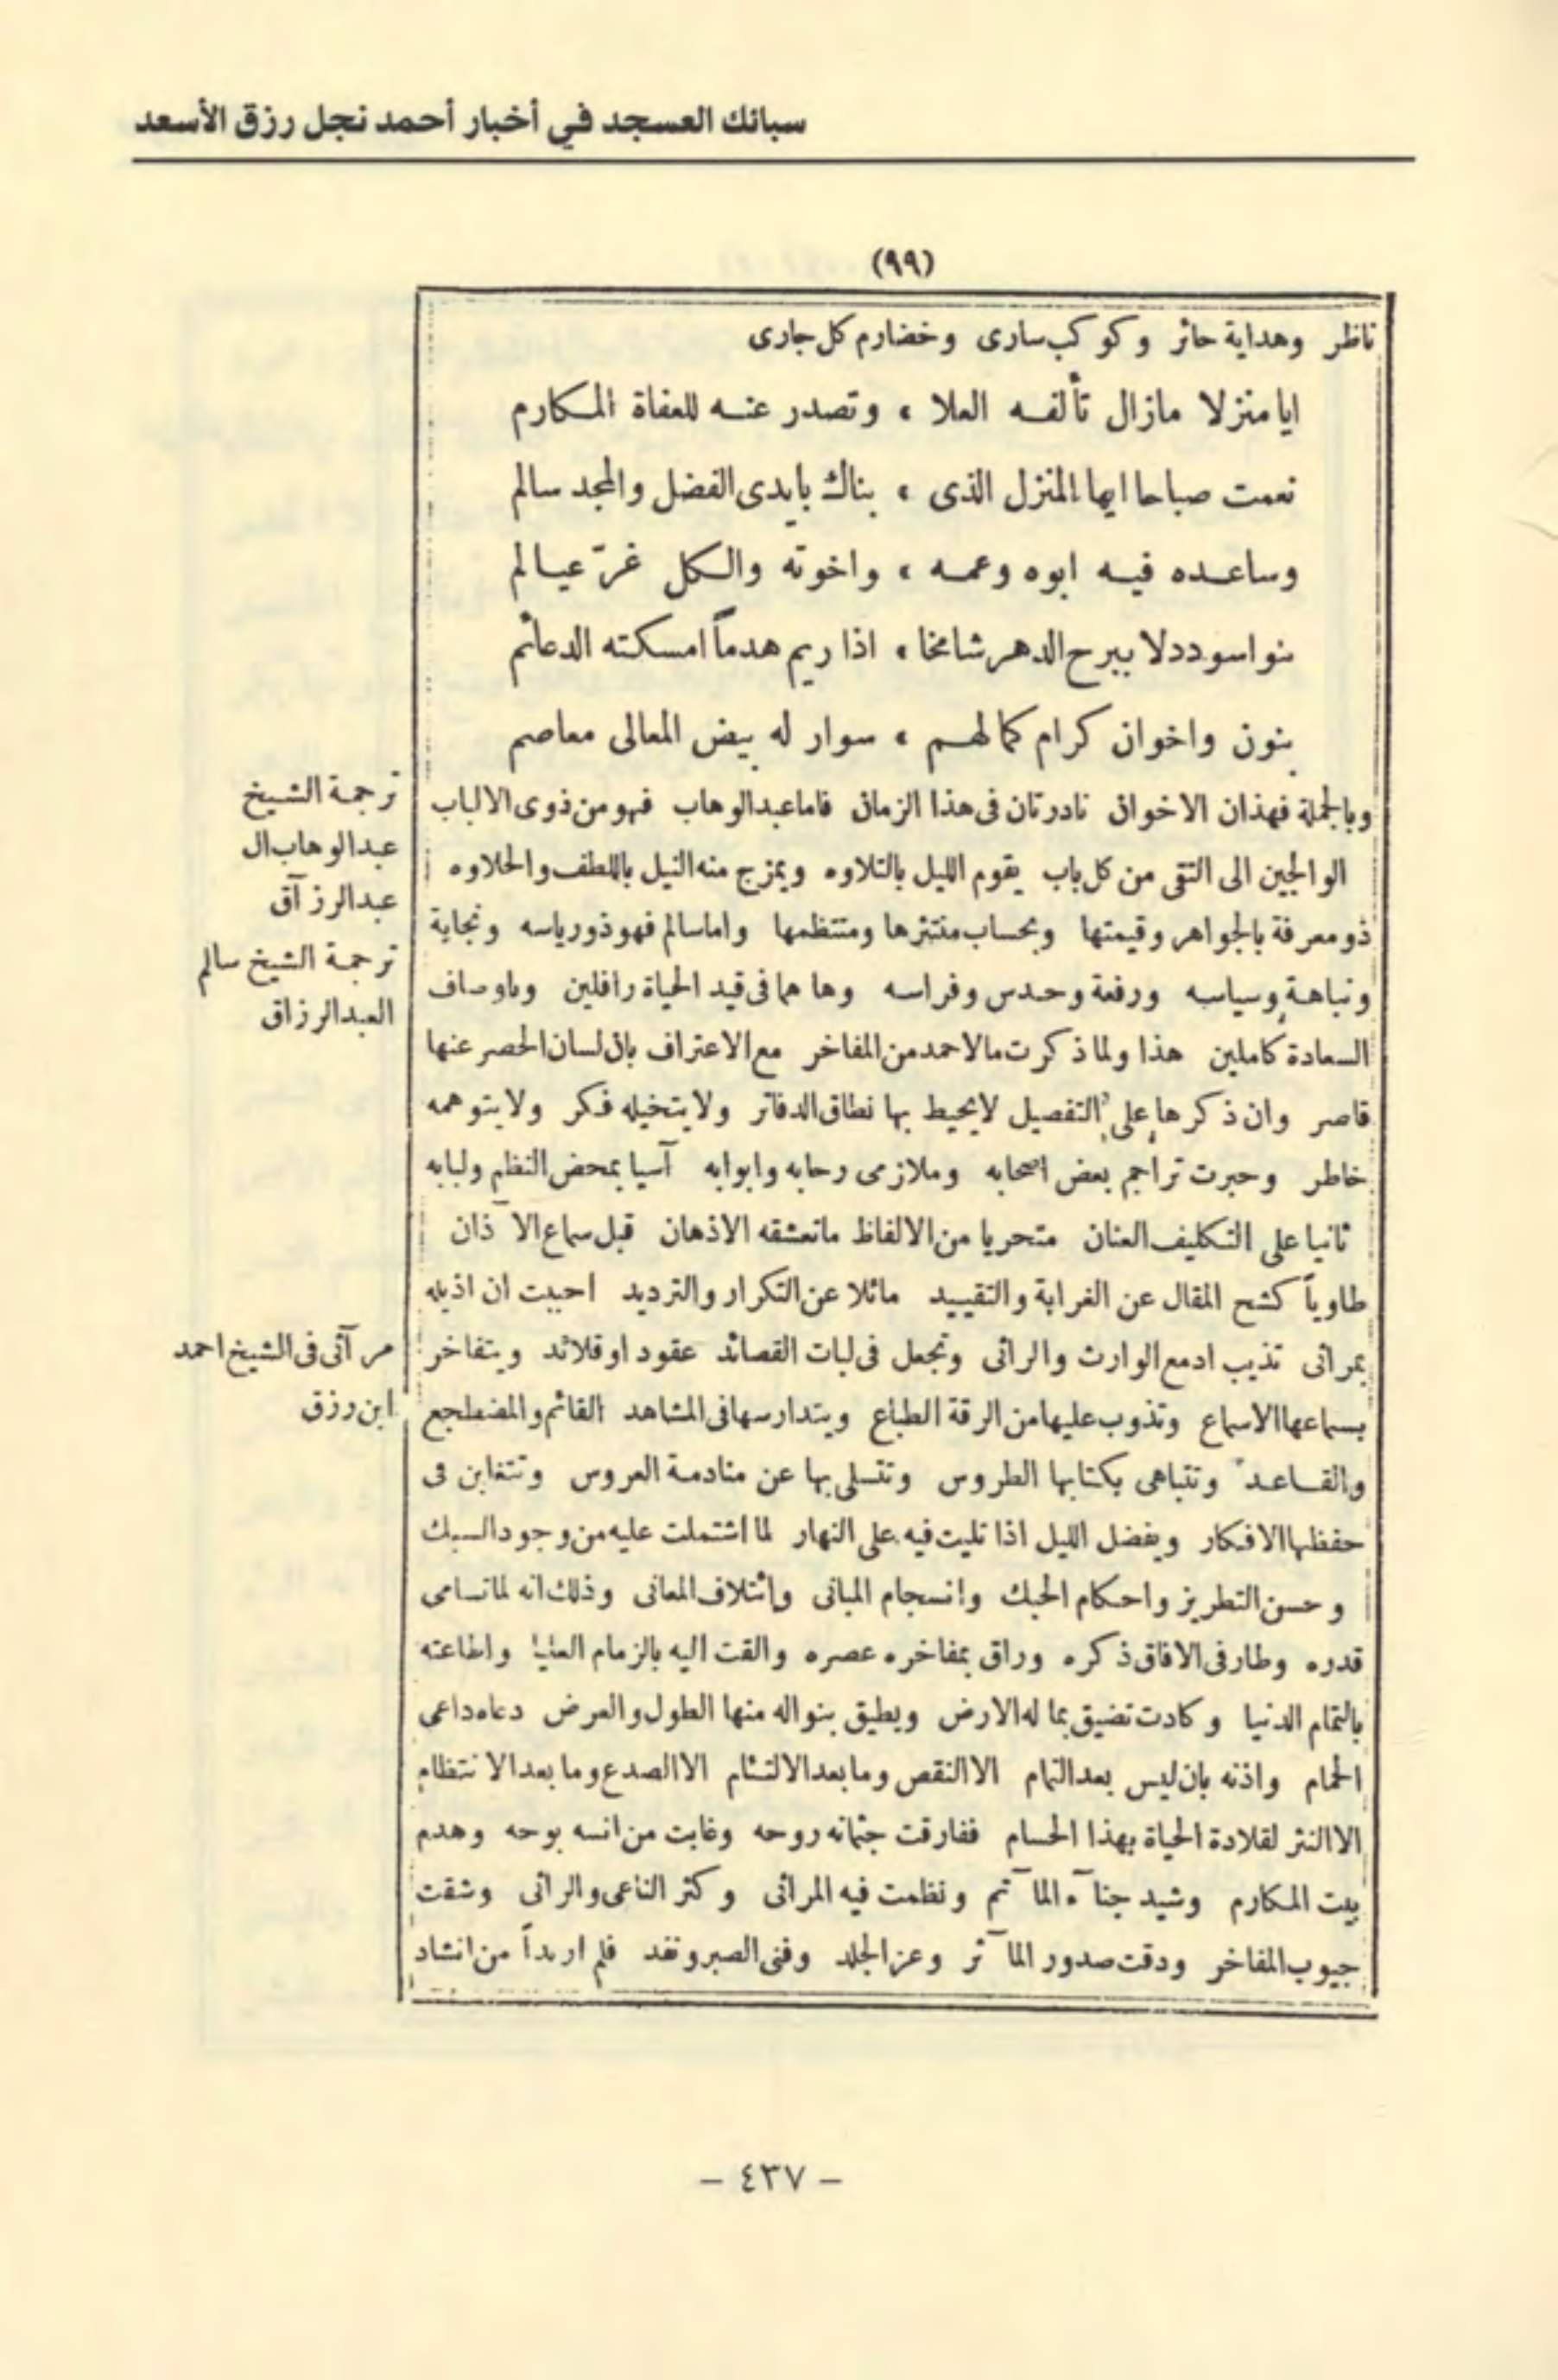 سبائك العسجد في أخبار أحمد نجل رزق الأسعد
(٩٩)
ناظر وهداية حائر وكوكب سارى وخضارم كل جارى
ايا منزلا مازال تألفه العلا ، وتصدر عنه للعفاة المكارم
نعمت صباحا ايها المنزل الذى ، بناك بايدى الفضل والمجد سالم
وساعده فيه ابوه وعمه ، واخوته والكل غرّ عيالم
بنوا سوددلا يبرح الدهر شامخا ، اذا ريم هدماً امسكته الدعائم
بنون واخوان كرام كمالهم ، سوار له بيض المعالى معاصم
وبالجملة فهذان الاخوان نادرتان فى هذا الزمان فاما عبدالوهاب فهو من ذوى الالباب
الوالجين الى التقى من كل باب يقوم الليل بالتلاوه ويمزج منه النيل باللطف والحلاوه
ذو معرفة بالجواهر وقيمتها وبحساب منتثرها ومنتظمها واما سالم فهو ذو رياسه ونجابة
ونباهة وسياسه ورفعة وحدس وفراسه وها هما فى قيد الحياة رافلين وباوصاف
السعادة كاملين هذا ولما ذكرت ما لاحمد من المفاخر مع الاعتراف بان لسان الحصر عنها
قاصر وان ذكرها على التفصيل لا يحيط بها نطاق الدفاتر ولا يتخيله فكر ولا يتوهمه
خاطر وحبرت تراجم بعض اصحابه وملازمى رحابه وابوابه آسيا بمحض النظم ولبابه
ثانيا على التكليف العنان متحريا من الالفاظ ما تعشقه الاذهان قبل سماع الآذان
طاوياً كشح المقال عن الغرابة والتقييد مائلا عن التكرار والترديد احببت ان اذيله
بمرائى تذيب ادمع الوارث والرائى وتجعل فى لبات القصائد عقود او قلائد ويتفاخر
بسماعها الاسماع وتذوب عليها من الرقة الطباع ويتدارسها فى المشاهد القائم والمضطجع
والقاعد وتتباهى بكتابها الطروس وتتسلى بها عن منادمة العروس وتتغابن فى
حفظها الافكار ويفضل الليل اذا تليت فيه على النهار لما اشتملت عليه من وجود السبك
وحسن التطريز واحكام الحبك وانسجام المبانى وائتلاف المعانى وذلك انه لما تسامى
قدره وطار فى الافاق ذكره وراق بمفاخره عصره والقت اليه بالزمام العليا واطاعته
بالتمام الدنيا وكادت تضيق بما له الارض ويطيق بنواله منها الطول والعرض دعاه داعى
الحمام واذنه بان ليس بعد التمام الا النقص وما بعد الالتئام الا الصدع وما بعد الانتظام
الا النثر لقلادة الحياة بهذا الحسام ففارقت جثمانه روحه وغابت من انسه بوحه وهدم
بيت المكارم وشيد جنآء المآتم ونظمت فيه المراثى وكثر الناعى والراثى وشقت
جيوب المفاخر ودقت صدور المآثر وعز الجلد وفنى الصبر ونفد فلم ار بداً من انشاد
ترجمة الشيخ
عبدالوهاب ال
عبدالرزآق
ترجمة الشيخ سالم
العبدالرزاق
مرآثى فى الشيخ احمد
ابن رزق
– ٤٣٧ –